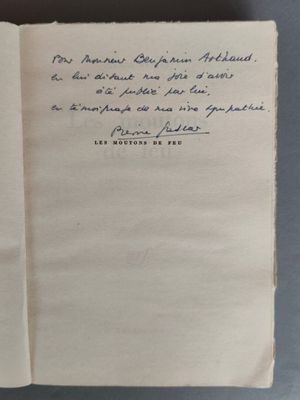 Pour Monsieur Benjamin Arthaud,
en lui disant ma joie d'avoir
été publié par lui,
en témoignage de ma vive sympathie.
Pierre Gascar
LES MOUTONS DE FEU